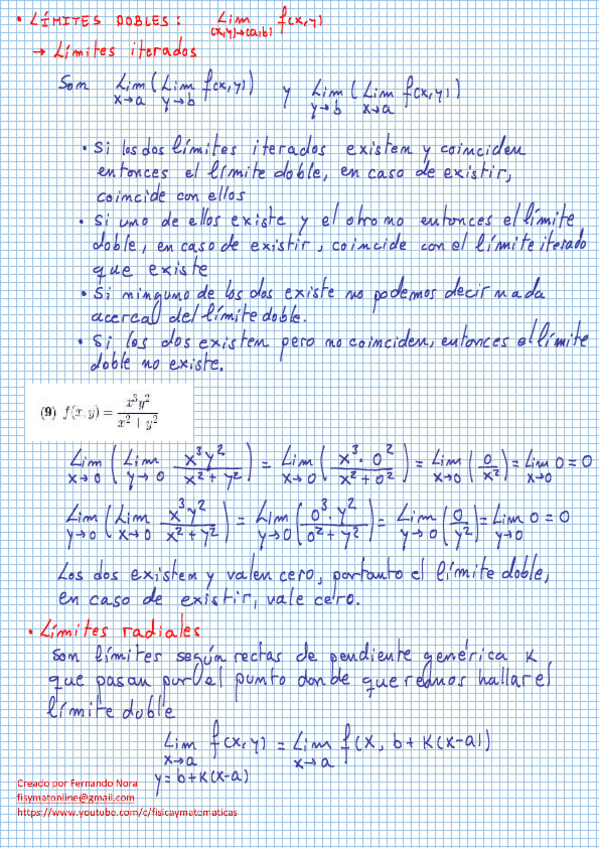 • LÍMITES DOBLES: Lim f(x,y)
(x,y)→(a,b)
→ Límites iterados
Son Lim (Lim f(x,y)) y Lim (Lim f(x,y))
x→a y→b y→b x→a
• Si los dos límites iterados existen y coinciden
entonces el límite doble, en caso de existir,
coincide con ellos
• Si uno de ellos existe y el otro no entonces el límite
doble, en caso de existir, coincide con el límite iterado
que existe
• Si ninguno de los dos existe no podemos decir nada
acerca del límite doble.
• Si los dos existen pero no coinciden, entonces el límite
doble no existe.
(9) f(x, y) = x³y² / x² + y²
Lim (Lim x³y² / x² + y²) = Lim (x³·0² / x² + 0²) = Lim (0 / x²) = Lim 0 = 0
x→0 y→0 x→0 x→0 x→0
Lim (Lim x³y² / x² + y²) = Lim (0³·y² / 0² + y²) = Lim (0 / y²) = Lim 0 = 0
y→0 x→0 y→0 y→0 y→0
Los dos existen y valen cero, por tanto el límite doble,
en caso de existir, vale cero.
• Límites radiales
Son límites según rectas de pendiente genérica K
que pasan por el punto donde queremos hallar el
límite doble
Lim f(x,y) = Lim f(x, b+K(x-a))
x→a x→a
y=b+K(x-a)
Creado por Fernando Nora
fisymatonline@gmail.com
https://www.youtube.com/c/fisicaymatematicas